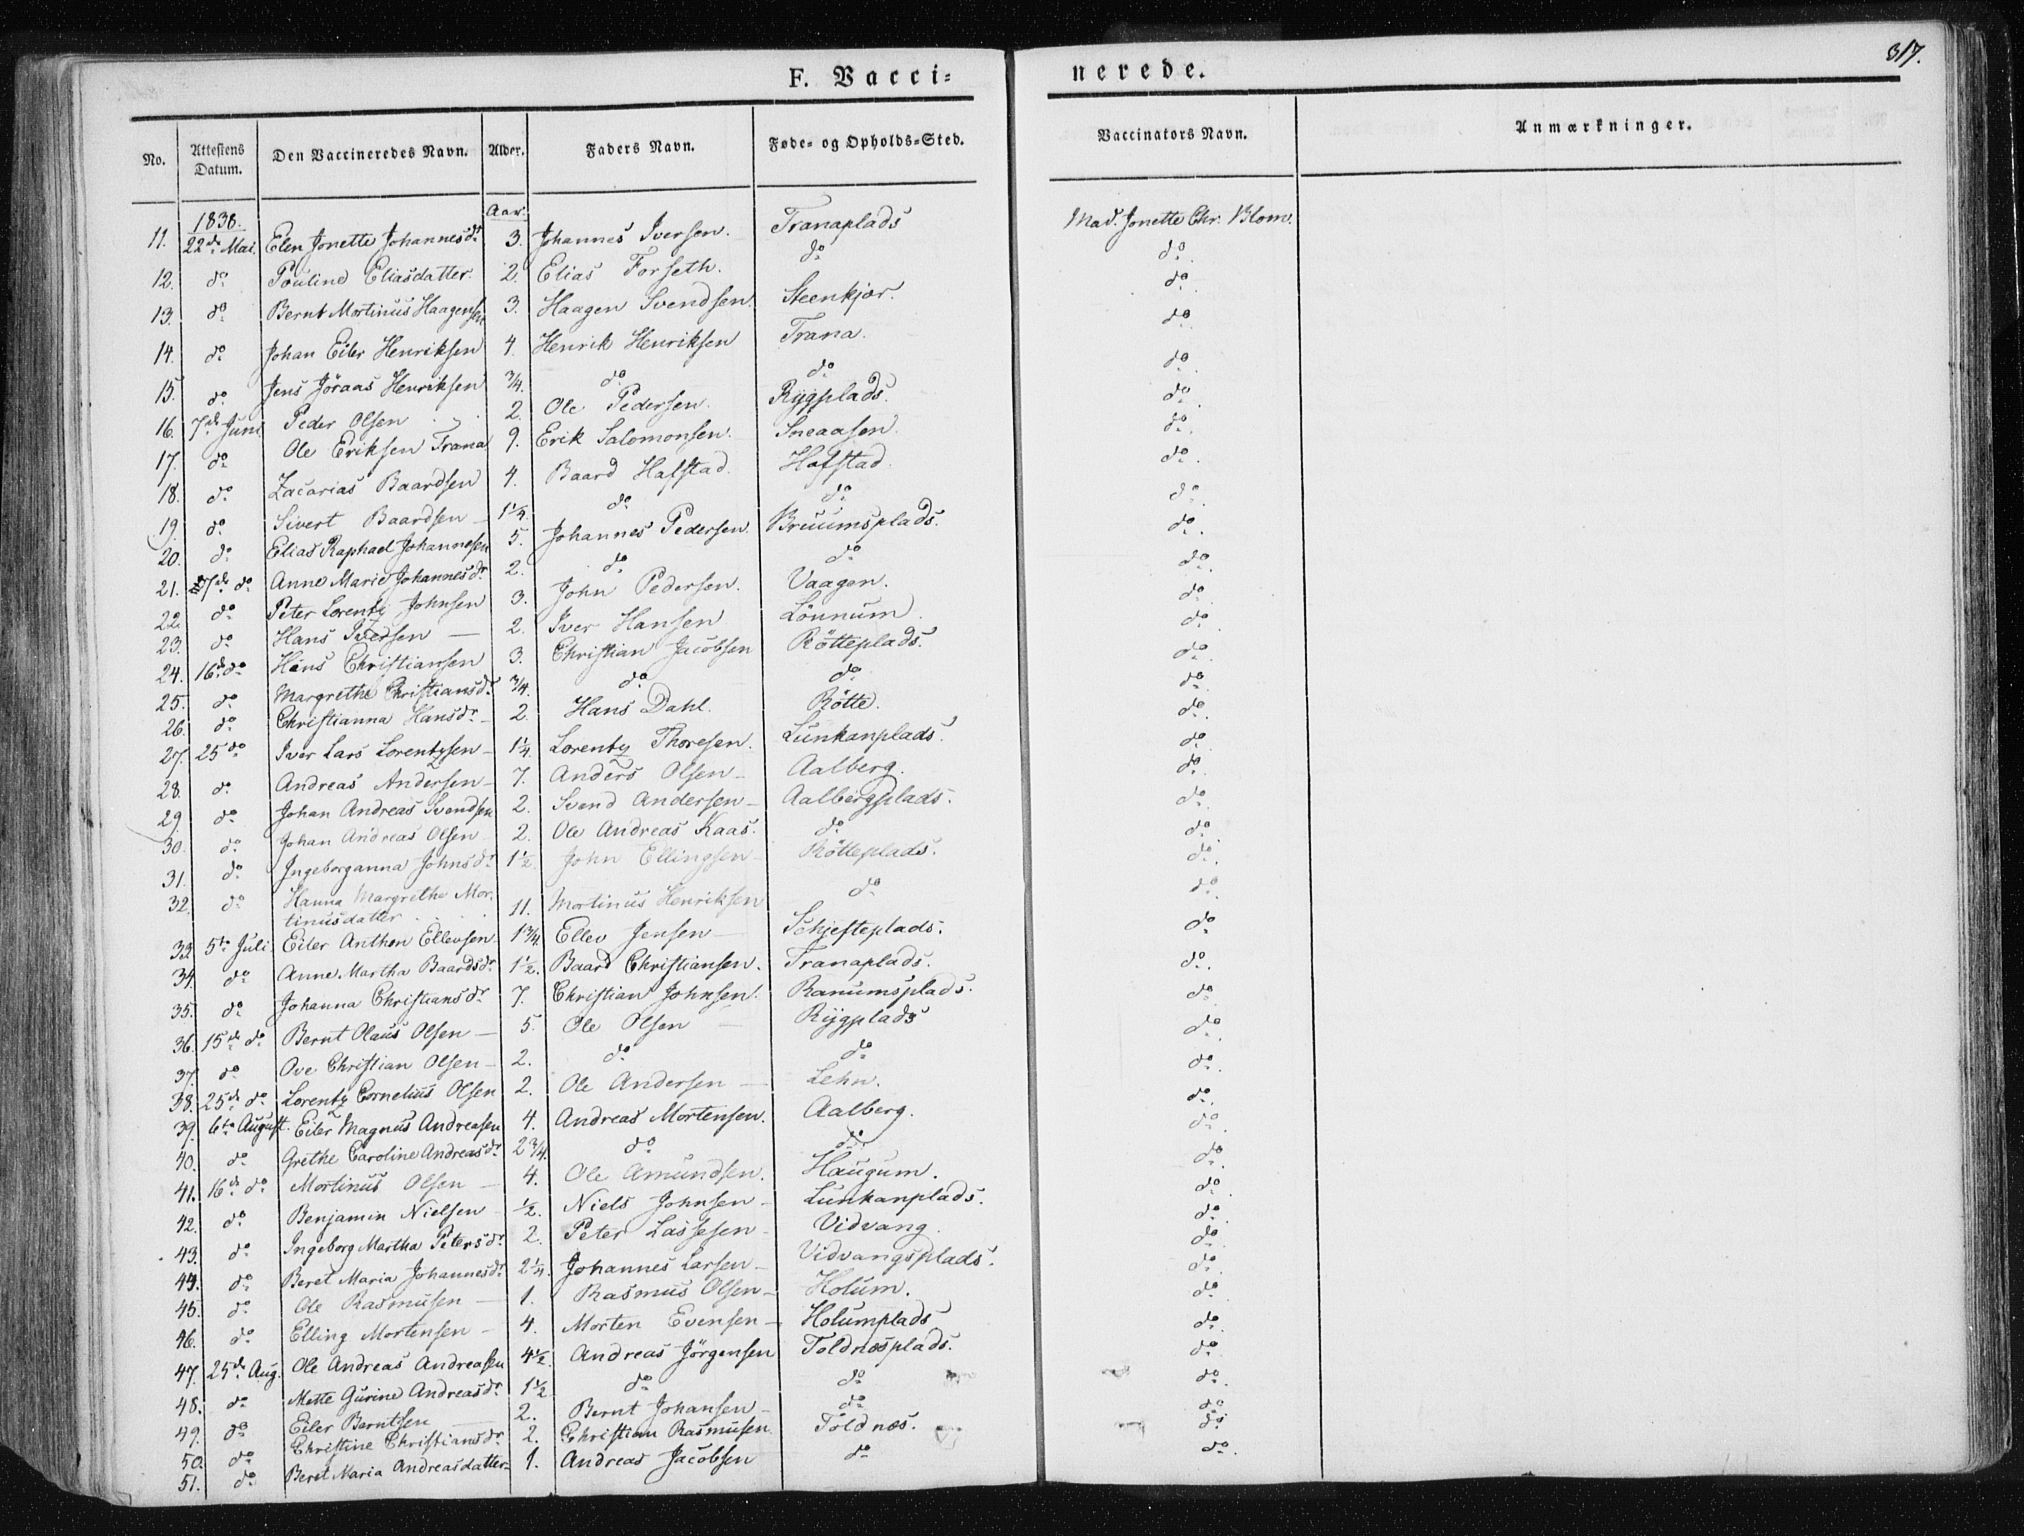 317.
F. Vacci= nerede.
No. Attestens Datum. Den Vaccineredes Navn. Alder. Faders Navn. Føde- og Opholds=Sted. Vaccinators Navn. Anmærkninger.
1838. Aar.
11. 22de Mai. Elen Jonette Johannesdr 3. Johannes Iversen. Tranaplads Mad. Jonette Chr. Blom.
12. do Poulind Eliasdatter 2. Elias Forseth. do do
13. do Bernt Mortinus Haagensen 3. Haagen Svendsen. Steenkjær. do
14. do Johan Eiler Henriksen 4. Henrik Henriksen Trana. do
15. do Jens Jöraas Henriksen 3/4. do do do
16. 7de Juni Peder Olsen 2. Ole Pedersen. Rygplads. do
17. do Ole Eriksen Trana 9. Erik Salomonsen. Sneaasen. do
18. do Zacarias Baardsen 4. Baard Hafstad. Hafstad. do
19. do Sivert Baardsen 1 1/4. do do do
20. do Elias Raphael Johannesen 5. Johannes Pedersen. Bruumsplads. do
21. 7de do Anne Marie Johannesdr 2. do do do
22. do Peter Lorentz Johnsen 3. John Pedersen. Vaagen. do
23. do Hans Iversen 2. Iver Hansen Lönnum. do
24. 16de do Hans Christiansen 3. Christian Jacobsen Rötteplads. do
25. do Margrethe Christiansdr 3/4. do do do
26. do Christianna Hansdr 2. Hans Dahl. Rötte. do
27. 25 do Iver Lars Lorentzsen 1 1/4. Lorentz Thoresen. Lunkanplads. do
28. do Andreas Andersen 7. Anders Olsen Aalberg. do
29. do Johan Andreas Svendsen 2. Svend Andersen Aalbergplads. do
30. do Johan Andreas Olsen 2. Ole Andreas Kaas. do do
31. do Ingeborganna Johnsdr 1 1/2. John Ellingsen Rötteplads. do
32. do Hanna Margrethe Mor-
tinusdatter 11. Mortinus Henriksen do do
33. 5te Juli Eiler Anthon Ellevsen 1 3/4. Ellev Jensen Schjefteplads. do
34. do Anne Martha Baardsdr 1 1/2. Baard Christiansen. Tranaplads. do
35. do Johanna Christiansdr 7. Christian Johnsen. Ranumsplads. do
36. 15de do Bernt Olaus Olsen 5. Ole Olsen Rygplads do
37. do Ove Christian Olsen 2. do do do
38. 25de do Lorentz Cornelius Olsen 2. Ole Andersen Lehn. do
39. 6te August. Eiler Magnus Andreasen 4. Andreas Mortensen. Aalberg. do
40. do Grethe Caroline Andreasdr 2 3/4. do do do
41. 16de do Mortinus Olsen 4. Ole Amundsen. Haugum. do
42. do Benjamin Nielsen 1/2. Niels Johnsen Lunkanplads. do
43. do Ingeborg Martha Petersdr 2. Peter Lassesen Vidvang. do
44. do Beret Maria Johannesdr 2 1/4. Johannes Larsen Vidvangsplads. do
45. do Ole Rasmusen 1. Rasmus Olsen Holum. do
46. do Elling Mortensen 4. Morten Evensen Holumplads do
47. 25de Aug. Ole Andreas Andreasen 4 1/2. Andreas Jörgensen Toldnæsplads. do
48. do Mette Gurine Andreasdr 1 1/2 do do do
49. do Eiler Berntsen 2. Bernt Johansen do do
50. do Christine Christiansdr 2. Christian Rasmusen. Toldnæs. do
51. do Beret Maria Andreasdatter 1. Andreas Jacobsen do do